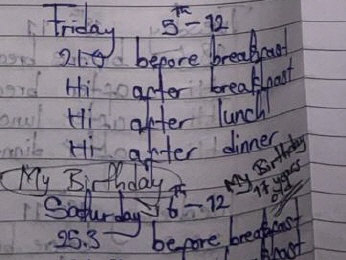 Friday 5th - 12
21.0 before breakfast
Hi after breakfast
Hi after lunch
Hi after dinner
My Birthday
My Birthday
17 years
Saturday 6th - 12
25.3 before breakfast
breakfast